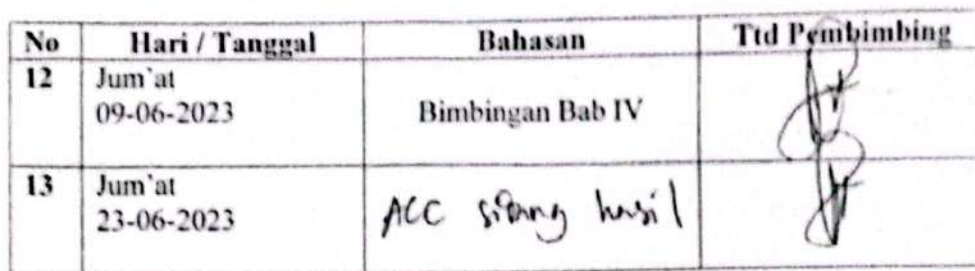 No Hari / Tanggal Bahasan Ttd Pembimbing
12 Jum'at
09-06-2023 Bimbingan Bab IV
13 Jum'at
23-06-2023 ACC sidang hasil